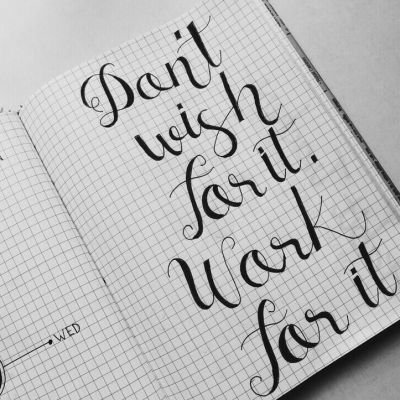 WED
Don't
wish
for it.
Work
for it